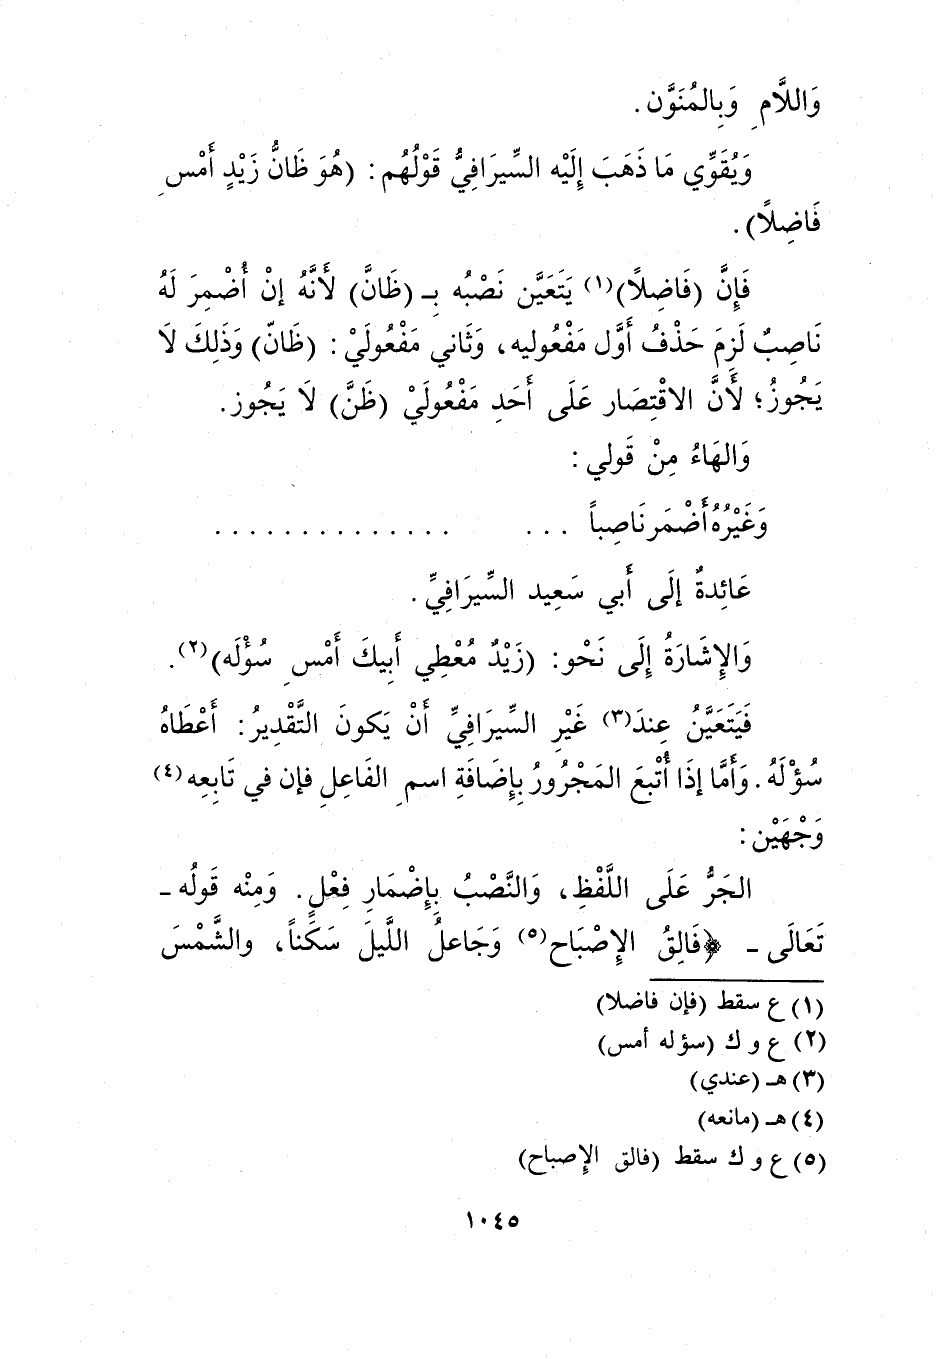 وَاللَّامِ وَبِالمُنَوَّن.
وَيُقَوِّي مَا ذَهَبَ إِلَيْه السِّيرَافِيُّ قَوْلُهُم: (هُوَ ظَانُّ زَيْدٍ أَمْسِ
فَاضِلًا).
فَإِنَّ (فَاضِلًا)(١) يَتَعَيَّن نَصْبُه بِـ (ظَانَّ) لأَنَّهُ إنْ أُضْمِرَ لَهُ
نَاصِبٌ لَزِمَ حَذْفُ أَوَّل مَفْعُوليه، وَثَاني مَفْعُولَيْ: (ظَانّ) وَذَلِكَ لَا
يَجُوزُ؛ لأَنَّ الاقْتِصَار عَلَى أَحَدِ مَفْعُولَيْ (ظَنَّ) لَا يَجُوز.
وَالهَاءُ مِنْ قَولي:
وَغَيْرُهُ أَضْمَر نَاصِباً ... ..............
عَائِدةٌ إلَى أَبي سَعِيد السِّيرَافِيِّ.
وَالإِشَارَةُ إِلَى نَحْو: (زَيْدٌ مُعْطِي أَبِيكَ أَمْسِ سُؤْلَه)(٢).
فَيَتَعَيَّنُ عِندَ(٣) غَيْرِ السِّيرَافِيِّ أَنْ يَكونَ التَّقْدِيرُ: أَعْطَاهُ
سُؤْلَهُ. وَأَمَّا إذَا أُتْبعَ المَجْرُورُ بِإِضَافَةِ اسمِ الفَاعِلِ فإن في تَابِعِه(٤)
وَجْهَيْن:
الجَرُّ عَلَى اللَّفْظِ، وَالنَّصْبُ بِإِضْمَارِ فِعْلٍ. وَمِنْه قَولُه -
تَعَالَى - ﴿فَالِقُ الإِصْبَاح(٥) وَجَاعلُ اللَّيلَ سَكَناً، والشَّمْسَ
(١) ع سقط (فإن فاضلا)
(٢) ع و ك (سؤله أمس)
(٣) هـ (عندي)
(٤) هـ (مانعه)
(٥) ع و ك سقط (فالق الإصباح)
١٠٤٥